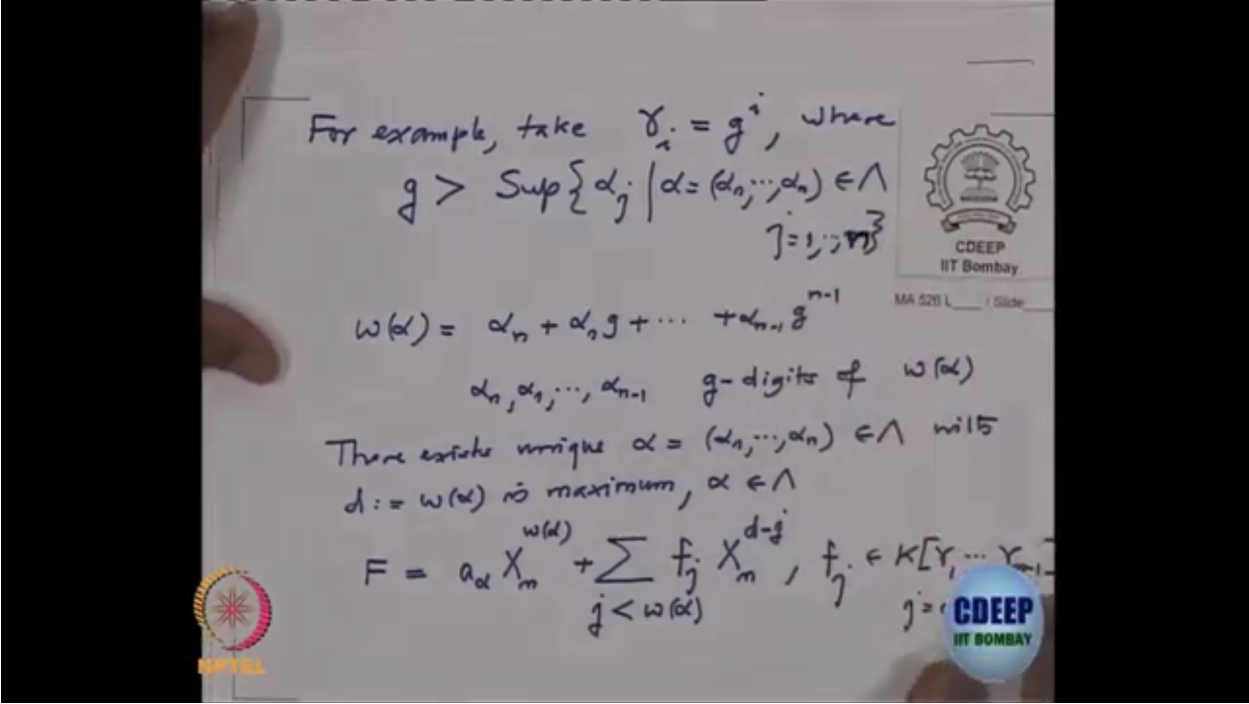 For example, take γ_i = g^i, where
g > Sup{α_j | α = (α_1, ..., α_n) ∈ Λ
j = 1, ..., n}
CDEEP
IIT Bombay
MA 526 L____ / Slide____
w(α) = α_n + α_1 g + ... + α_{n-1} g^{n-1}
α_n, α_1, ..., α_{n-1} g-digits of w(α)
There exists unique α = (α_1, ..., α_n) ∈ Λ with
d := w(α) is maximum, α ∈ Λ
F = a_α X_n^{w(α)} + Σ_{j < w(α)} f_j X_n^{d-j}, f_j ∈ K[Y_1 ... Y_{n-1}]
j =
CDEEP
IIT BOMBAY
NPTEL